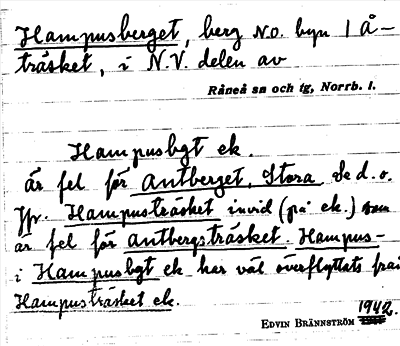 Hampusberget, berg N.O. byn 1 Å-
träsket, i N.V. delen av
Råneå sn och tg, Norrb. l.
Hampusbgt ek.
är fel för Antberget, Stora Se d.o.
Jfr. Hampusträsket invid (på ek.) som
är fel för Antbergsträsket. Hampus-
i Hampusbgt ek har väl överflyttats från
Hampusträsket ek.
EDVIN BRÄNNSTRÖM 1942.